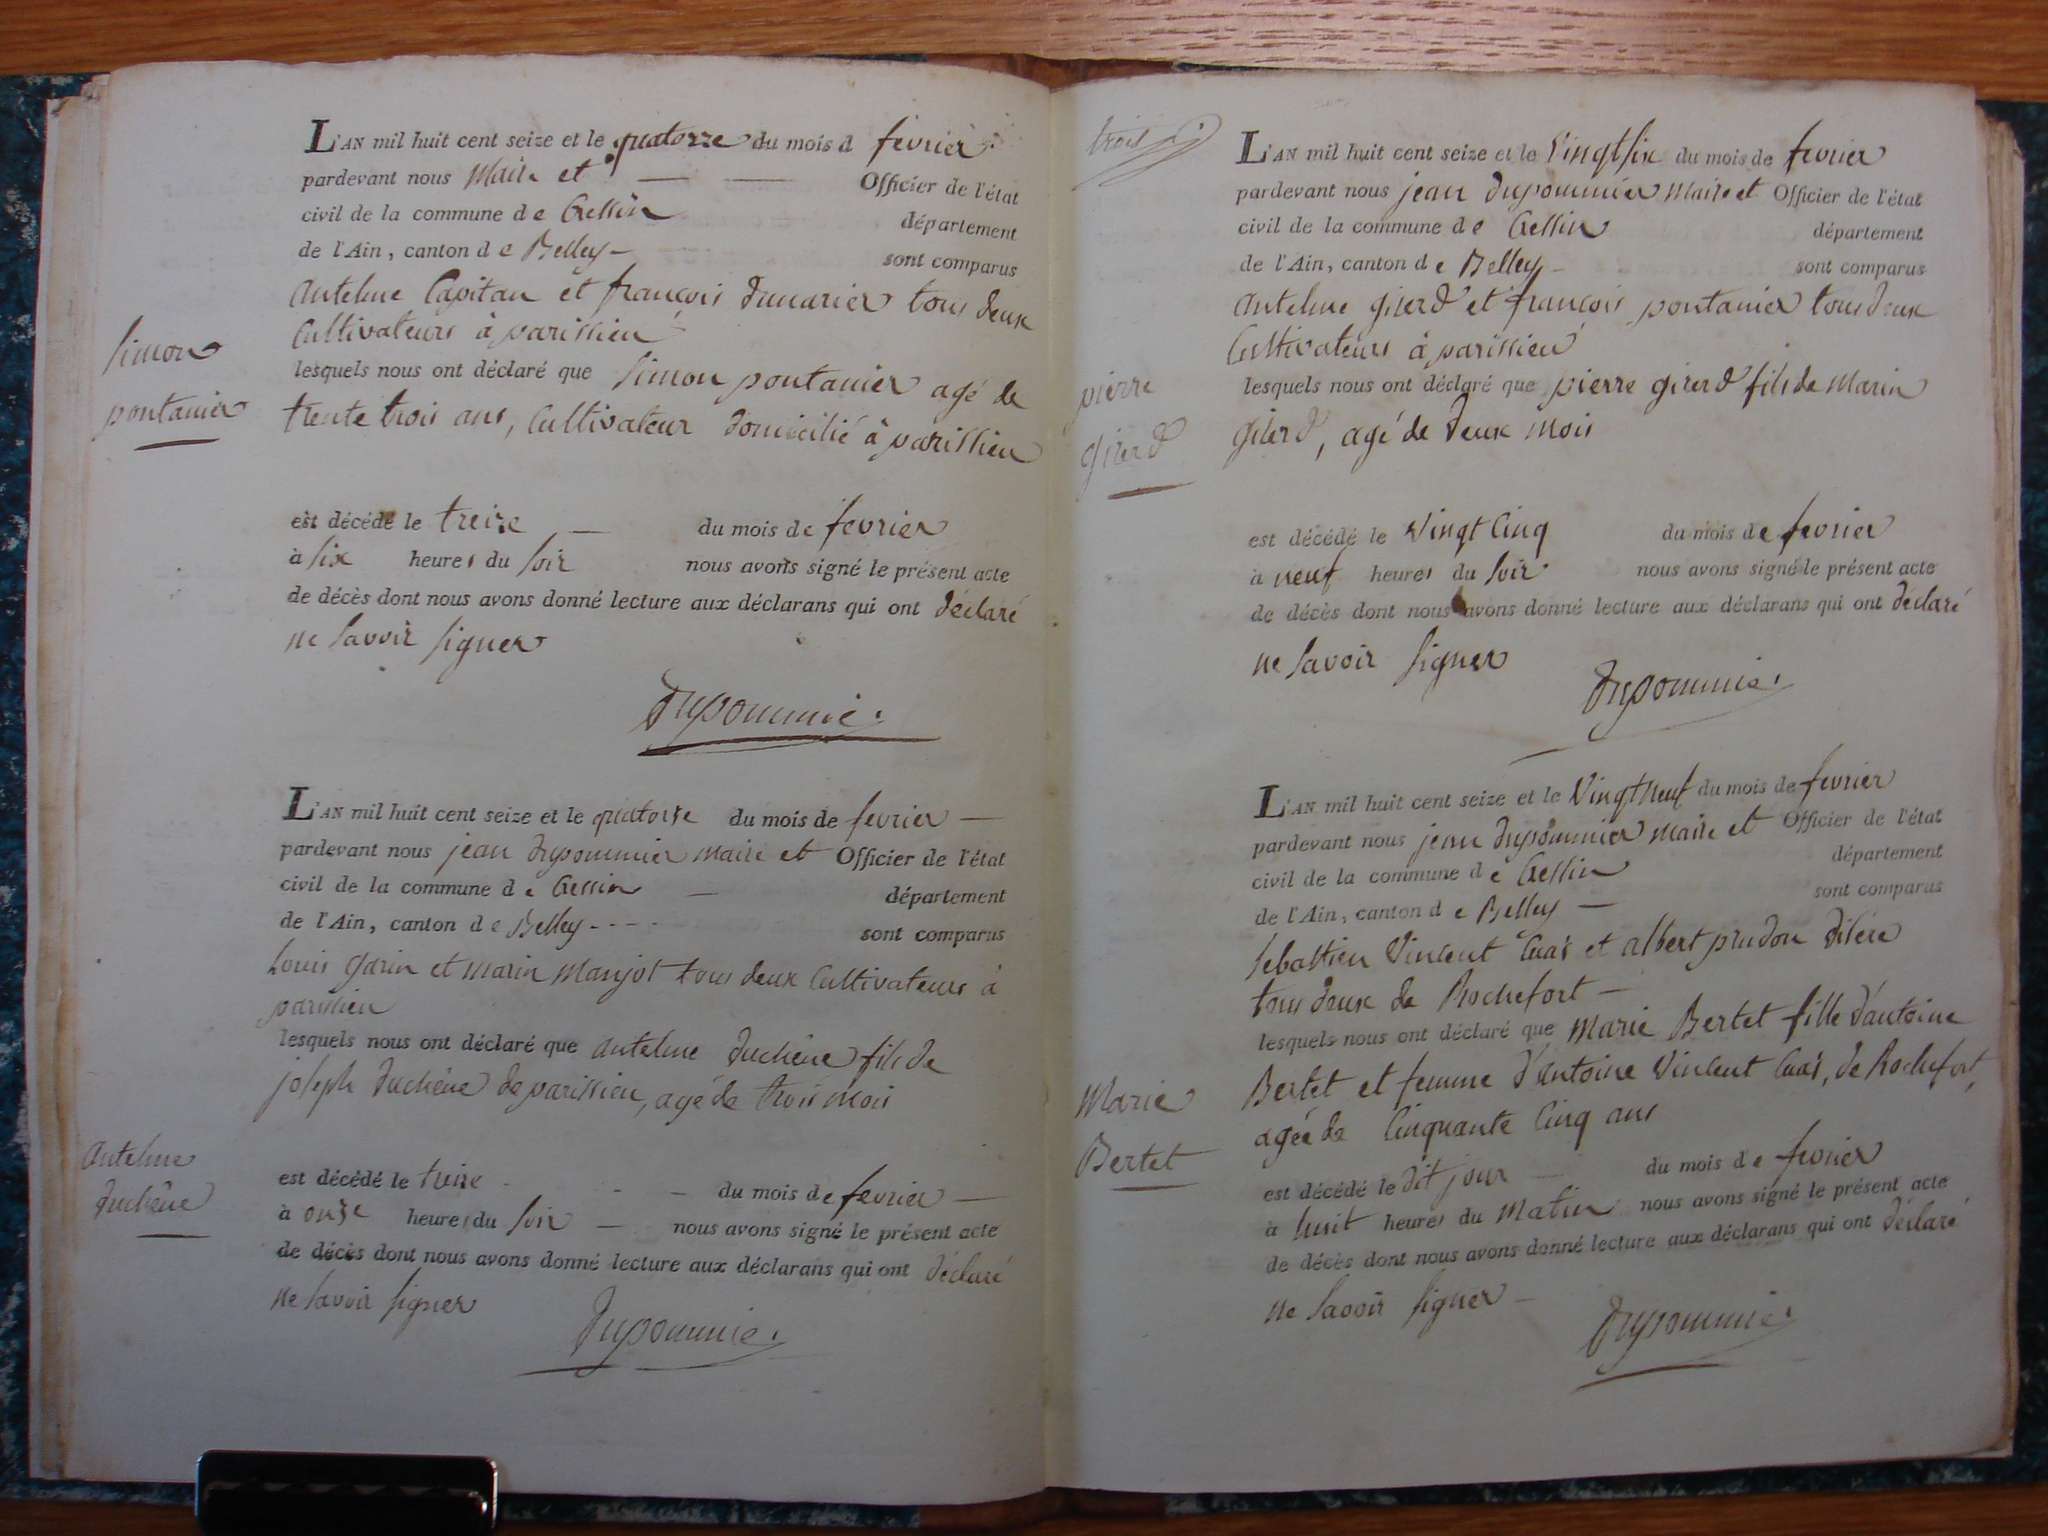 L'AN mil huit cent seize et le quatorze du mois d fevrier
pardevant nous Maire et Officier de l'état
civil de la commune de Cressin département
de l'Ain, canton de Belley sont comparus
antelme Capitan et françois dumarier tous deux
Cultivateurs à parissieu
lesquels nous ont déclaré que Simon pontanier agé de
trente trois ans, Cultivateur domicilié à parissieu
est décédé le treize du mois de fevrier
à Six heures du Soir nous avons signé le présent acte
de décès dont nous avons donné lecture aux déclarans qui ont déclaré
ne Savoir Signer
Dupommier
Simon
pontanier
L'AN mil huit cent seize et le quatorze du mois de fevrier
pardevant nous jean dupommier maire et Officier de l'état
civil de la commune de Cressin département
de l'Ain, canton de Belley sont comparus
Louis garin et marin Manjot tous deux Cultivateurs à
parissieu
lesquels nous ont déclaré que antelme duchêne fils de
joseph duchêne de parissieu, agé de trois mois
est décédé le treize du mois de fevrier
à onze heures du Soir nous avons signé le présent acte
de décès dont nous avons donné lecture aux déclarans qui ont déclaré
ne Savoir Signer
Dupommier
antelme
duchêne
trois
L'AN mil huit cent seize et le Vingt Six du mois de fevrier
pardevant nous jean dupommier maire et Officier de l'état
civil de la commune de Cressin département
de l'Ain, canton de Belley sont comparus
antelme girerd et françois pontanier tous deux
Cultivateurs à parissieu
lesquels nous ont déclaré que pierre girerd fils de Marin
girerd, agé de deux mois
est décédé le Vingt Cinq du mois de fevrier
à neuf heures du Soir nous avons signé le présent acte
de décès dont nous avons donné lecture aux déclarans qui ont déclaré
ne Savoir Signer
Dupommier
pierre
girerd
L'AN mil huit cent seize et le Vingt neuf du mois de fevrier
pardevant nous jean dupommier maire et Officier de l'état
civil de la commune de Cressin département
de l'Ain, canton de Belley sont comparus
Sebastien Vincent et albert prudon
tous deux de Rochefort
lesquels nous ont déclaré que Marie Bertet fille d'antoine
Bertet et femme d'antoine Vincent de Rochefort,
agée de Cinquante Cinq ans
est décédé le dit jour du mois de fevrier
à huit heures du Matin nous avons signé le présent acte
de décès dont nous avons donné lecture aux déclarans qui ont déclaré
ne Savoir Signer
Dupommier
Marie
Bertet